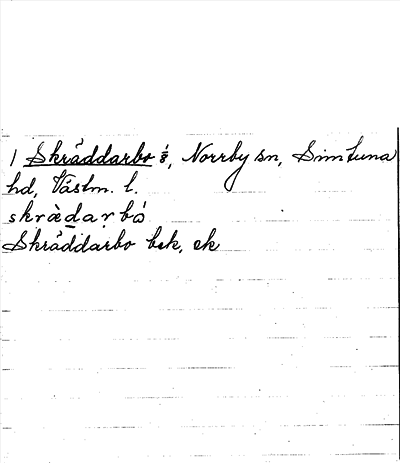 1 Skräddarbo 1/8, Norrby sn, Simtuna
hd, Västm. l.
skrædarbo
Skräddarbo bek, ek